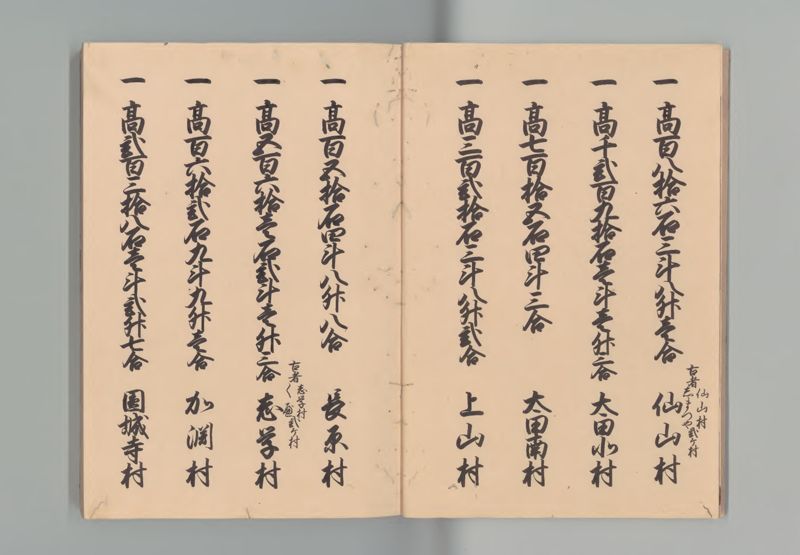 一 高百八拾六石三斗八升壱合 仙山村
古者 仙山村
しまつや 弐ケ村
一 高千弐百九拾石壱斗壱升三合 太田北村
一 高七百拾五石四斗三合 太田南村
一 高三百弐拾石三斗八升弐合 上山村
一 高百五拾石四斗八升八合 長原村
一 高五百六拾壱石弐斗壱升三合 志学村
古者 志学村
弐ケ村
一 高百六拾弐石九斗九升壱合 加渕村
一 高弐百三拾八石壱斗弐升七合 圓城寺村